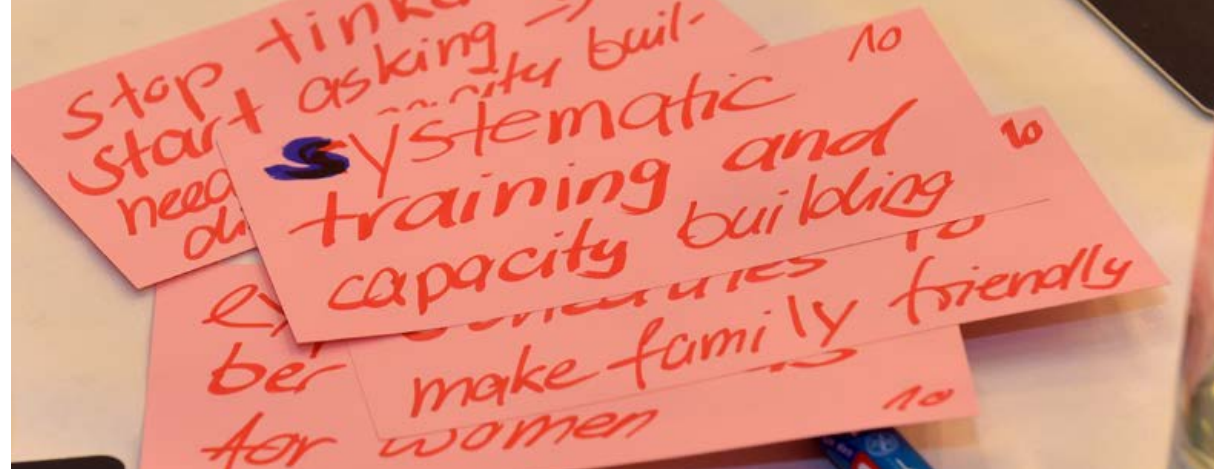 Stop
start asking →
buil-
10
Systematic
training and
capacity building
10
to
make family friendly
ber
for women
10